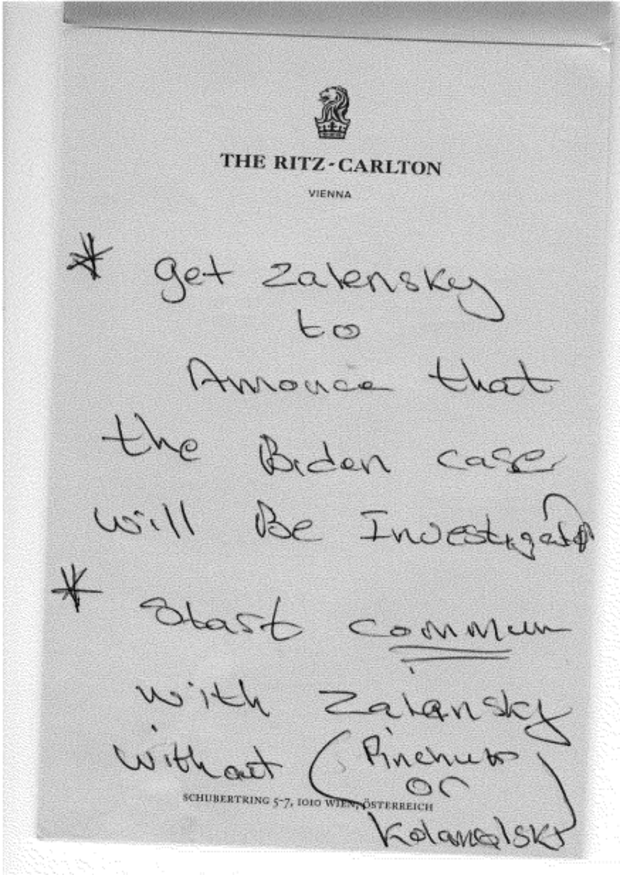 THE RITZ-CARLTON
VIENNA
* get Zalensky
to
Annouce that
the Biden case
will Be Investigated
* Start commun
with Zalensky
without (Pinchuk
or
SCHUBERTRING 5-7, 1010 WIEN, ÖSTERREICH
Kolamolski)